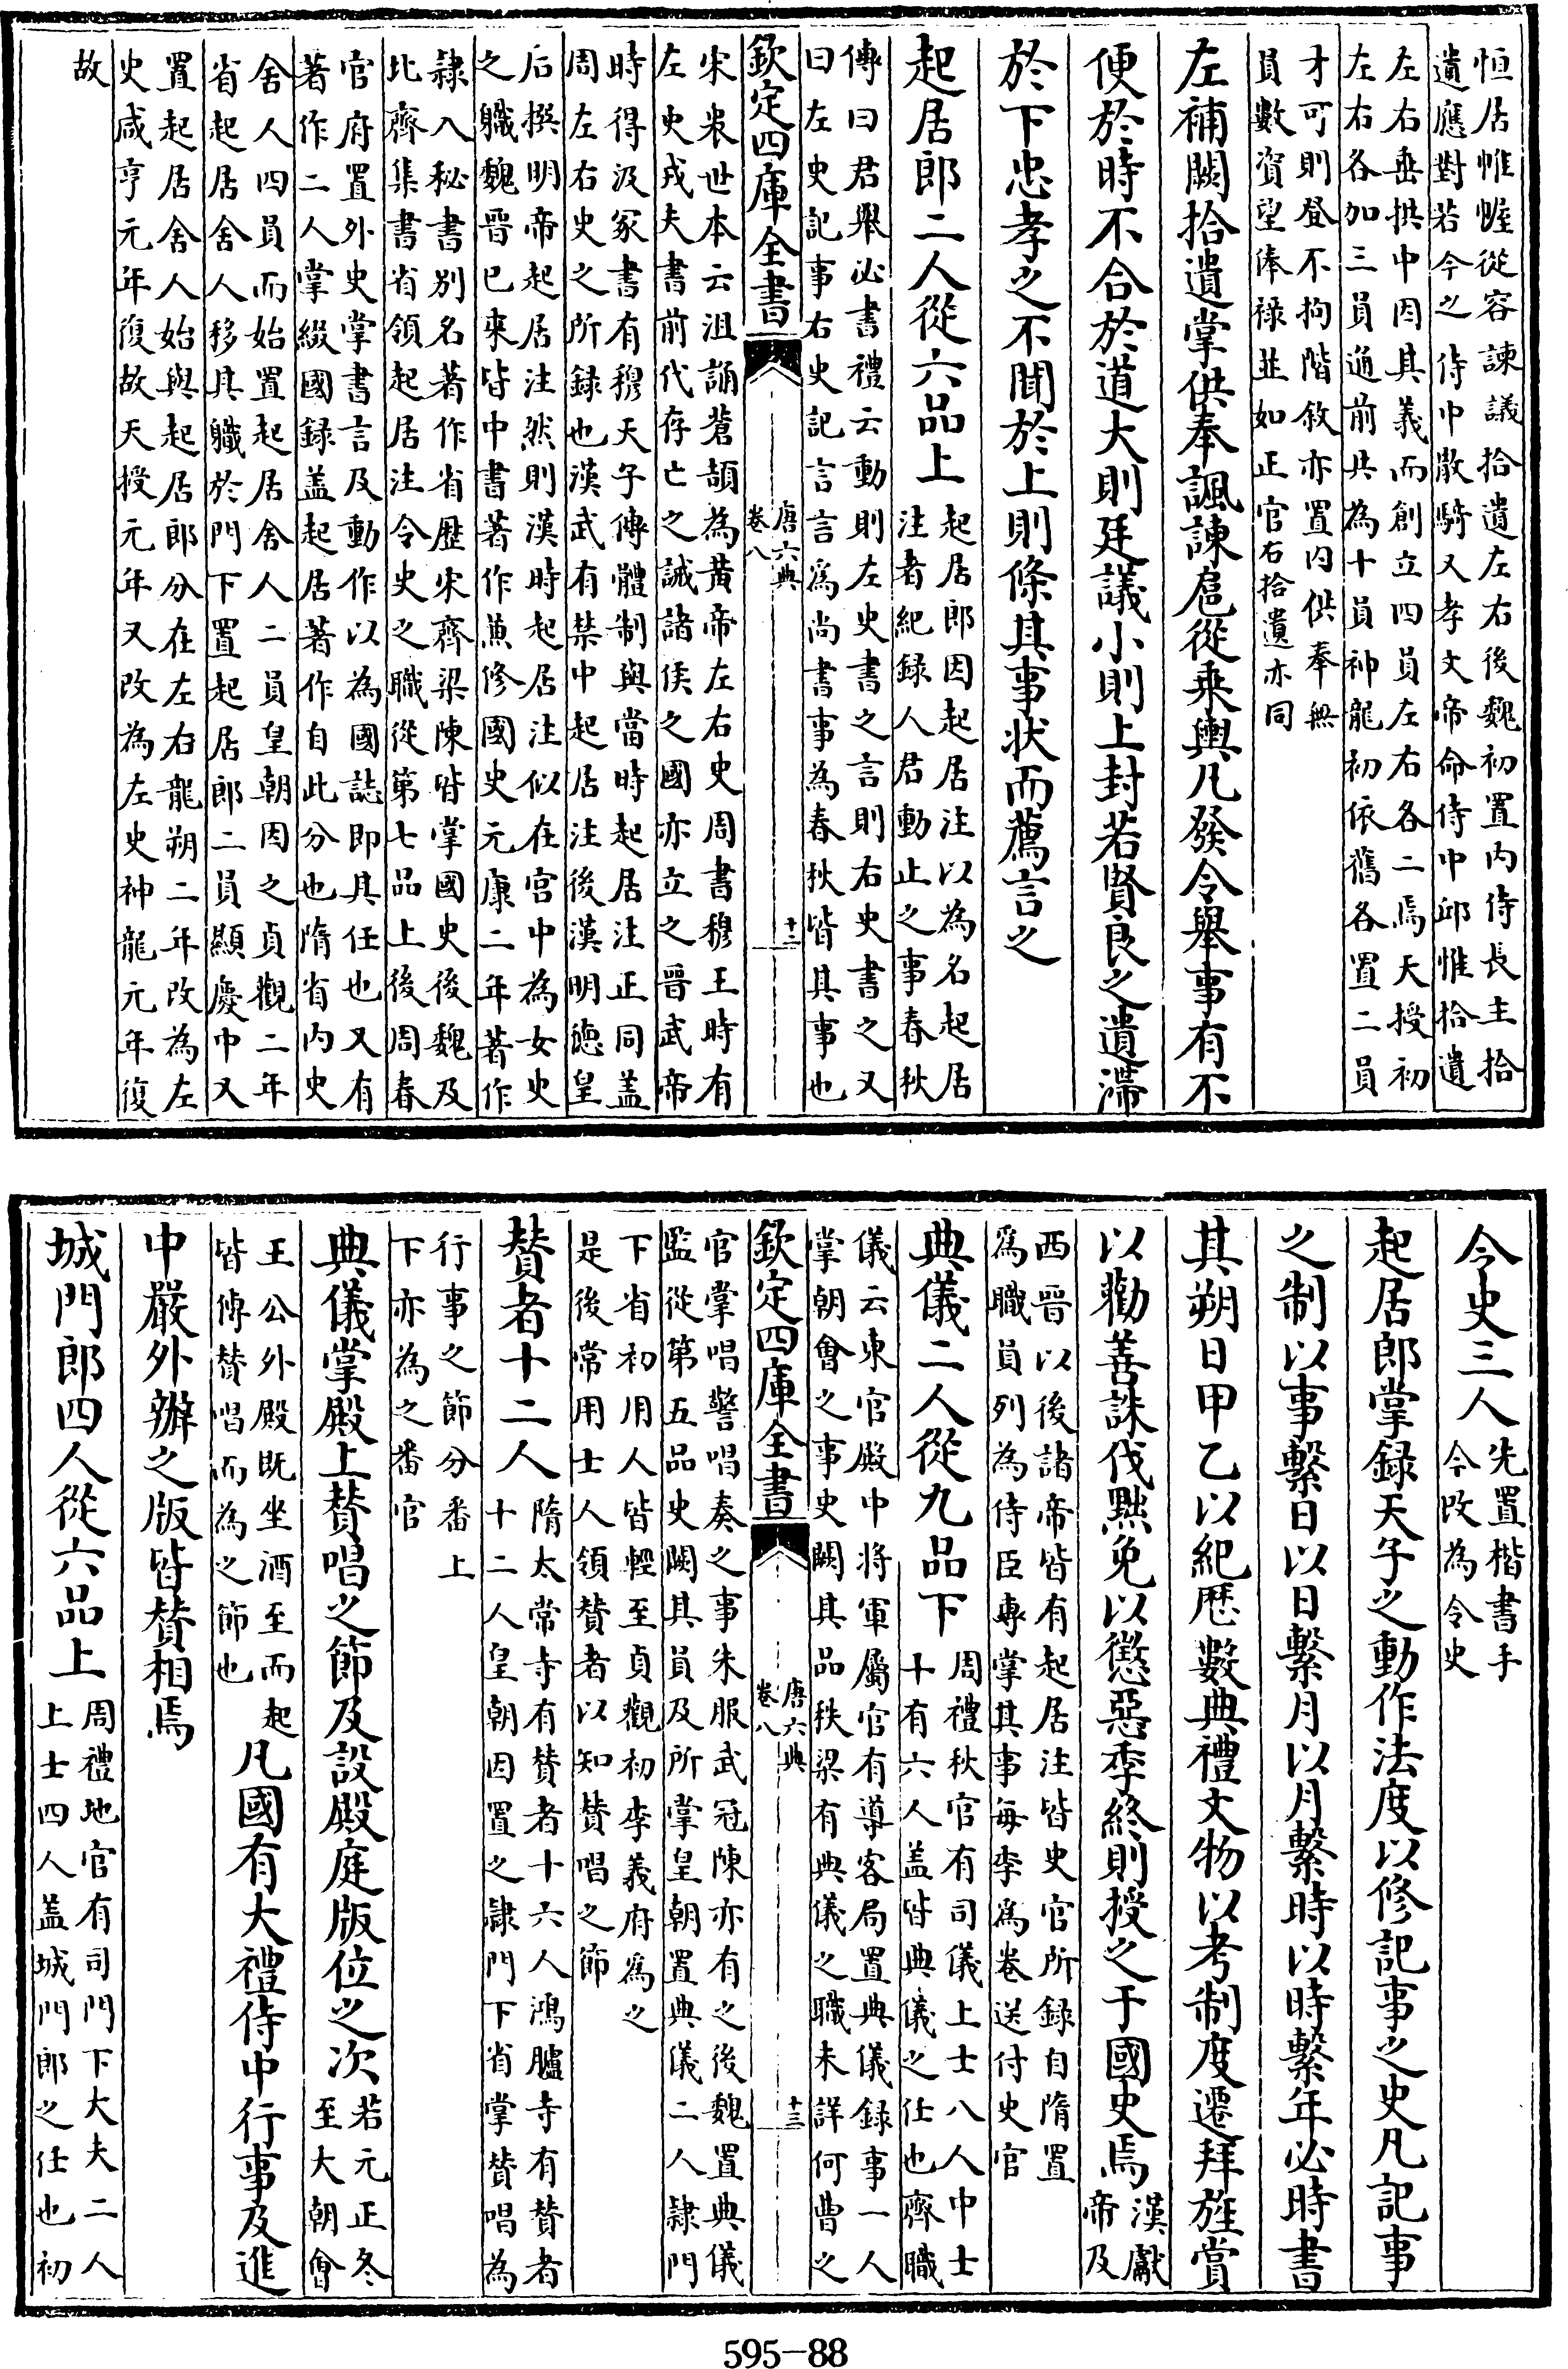 恒居帷幄從容諫議拾遺左右後魏初置内侍長主拾
遺應對若今之侍中散騎又孝文帝命侍中邱惟拾遺
左右垂拱中因其義而創立四員左右各二焉天授初
左右各加三員通前共為十員神龍初依舊各置二員
才可則登不拘階敘亦置内供奉無
員數資望俸祿並如正官右拾遺亦同
左補闕拾遺掌供奉諷諫扈從乗輿凡發令舉事有不
便於時不合於道大則廷議小則上封若賢良之遺滯
於下忠孝之不聞於上則條其事狀而薦言之
起居郎二人從六品上
起居郎因起居注以為名起居
注者紀録人君動止之事春秋
傳曰君舉必書禮云動則左史書之言則右史書之又
曰左史記事右史記言言爲尚書事為春秋皆其事也
欽定四庫全書
唐六典
卷八
十二
宋衷世本云沮誦蒼頡為黃帝左右史周書穆王時有
左史戎夫書前代存亡之誡諸侯之國亦立之晉武帝
時得汲冢書有穆天子傳體制與當時起居注正同盖
周左右史之所録也漢武有禁中起居注後漢明徳皇
后撰明帝起居注然則漢時起居注似在宫中為女史
之職魏晉已來皆中書著作兼修國史元康二年著作
隸入秘書别名著作省歷宋齊梁陳皆掌國史後魏及
北齊集書省領起居注令史之職從第七品上後周春
官府置外史掌書言及動作以為國誌即其任也又有
著作二人掌綴國録盖起居著作自此分也隋省内史
舍人四員而始置起居舍人二員皇朝因之貞觀二年
省起居舍人移其職於門下置起居郎二員顯慶中又
置起居舍人始與起居郎分在左右龍朔二年改為左
史咸亨元年復故天授元年又改為左史神龍元年復
故
令史三人
先置楷書手
今改為令史
起居郎掌録天子之動作法度以修記事之史凡記事
之制以事繫日以日繫月以月繫時以時繫年必時書
其朔日甲乙以紀歴數典禮文物以考制度遷拜旌賞
以勸善誅伐黜免以懲惡季終則授之于國史焉
漢獻
帝及
西晉以後諸帝皆有起居注皆史官所録自隋置
爲職員列為侍臣專掌其事每季爲卷送付史官
典儀二人從九品下
周禮秋官有司儀上士八人中士
十有六人盖皆典儀之任也齊職
儀云東官殿中將軍屬官有導客局置典儀録事一人
掌朝會之事史闕其品秩梁有典儀之職未詳何曹之
欽定四庫全書
唐六典
卷八
十三
官掌唱警唱奏之事朱服武冠陳亦有之後魏置典儀
監從第五品史闕其員及所掌皇朝置典儀二人隷門
下省初用人皆輕至貞觀初李義府爲之
是後常用士人領賛者以知賛唱之節
賛者十二人
隋太常寺有賛者十六人鴻臚寺有賛者
十二人皇朝因置之隷門下省掌賛唱為
行事之節分番上
下亦為之番官
典儀掌殿上賛唱之節及設殿庭版位之次
若元正冬
至大朝會
王公外殿既坐酒至而起
皆傳賛唱而為之節也
凡國有大禮侍中行事及進
中嚴外辦之版皆賛相焉
城門郎四人從六品上
周禮地官有司門下大夫二人
上士四人盖城門郎之任也初
595-88